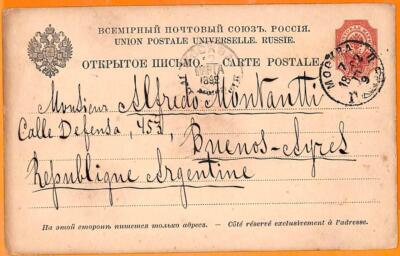 ВСЕМІРНЫЙ ПОЧТОВЫЙ СОЮЗЪ. РОССІЯ.
UNION POSTALE UNIVERSELLE. RUSSIE.
ОТКРЫТОЕ ПИСЬМО. — CARTE POSTALE.
Monsieur Alfredo Montantti
Calle Defensa, 453,
Buenos-Ayres
Republique Argentine
МОСКВА
1892
На этой сторонѣ пишется только адресъ. — Côté réservé exclusivement à l'adresse.